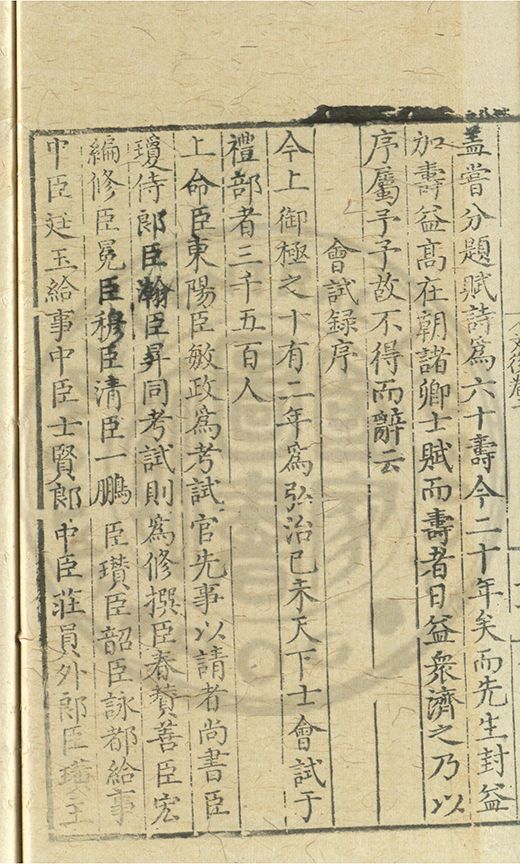 盖嘗分題賦詩為六十壽今二十年矣而先生封益
加壽益髙在朝諸卿士賦而壽者日益衆濟之乃以
序屬予予故不得而辭云
會試録序
今上御極之十有二年為弘治己未天下士會試于
禮部者三千五百人
上命臣東陽臣敏政為考試官先事以請者尚書臣
瓊侍郎臣瀚臣昇同考試則為修撰臣春賛善臣宏
編修臣冕臣穆臣清臣一鵬臣瓚臣韶臣詠都給事
中臣廷玉給事中臣士賢郎中臣莊員外郎臣